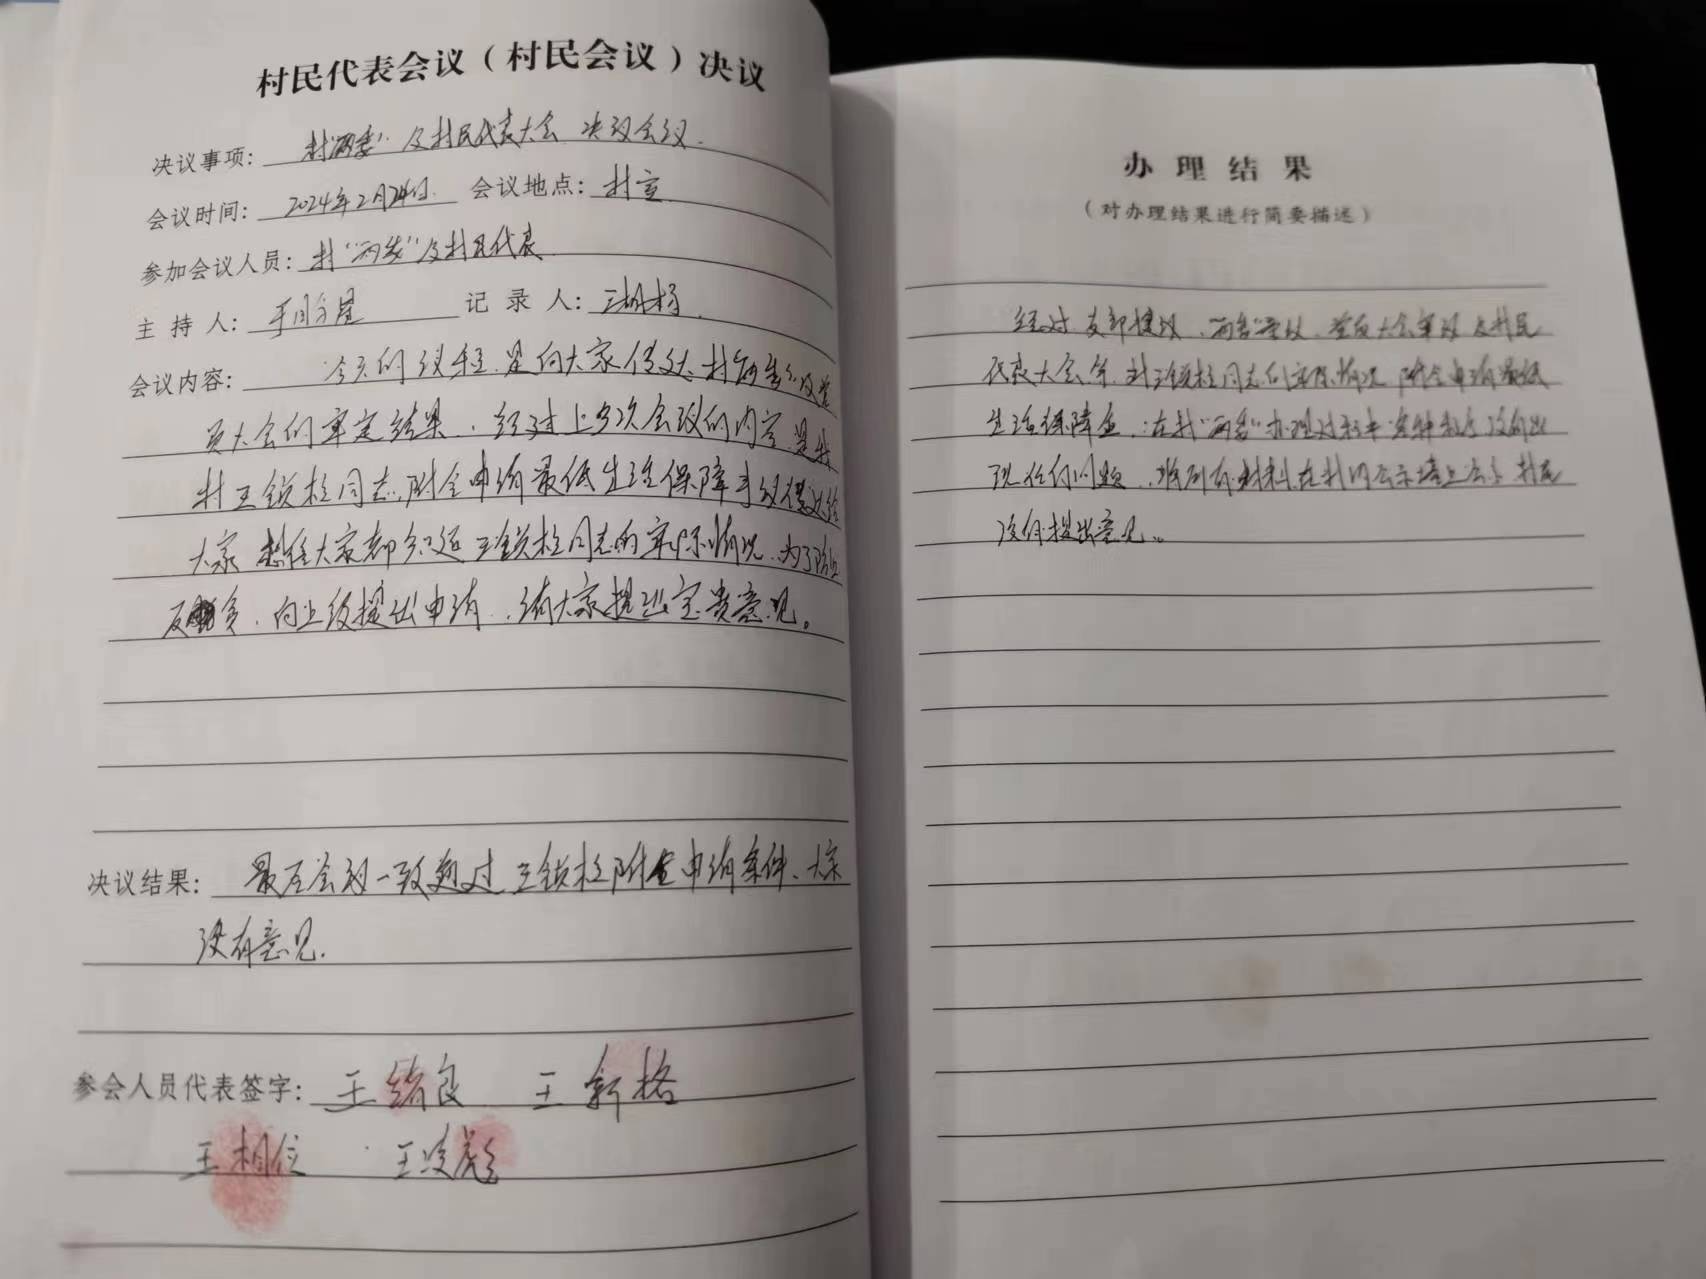 村民代表会议（村民会议）决议
决议事项：村“两委”及村民代表大会 决议会议.
会议时间：2024年2月24日. 会议地点：村室
参加会议人员：村“两委”及村民代表
主持人： 记录人：
会议内容：今天的议程是向大家传达村“两委”及党
员大会的审定结果，经过上多次会议的内容是我
村王锁柱同志，附合申请最低生活保障
大家 想信大家都知道王锁柱同志的实际情况，为了防止
反 ，向上级提出申请，请大家提出宝贵意见。
决议结果：最后会议一致通过王锁柱附合申请条件、大家
没有意见.
参会人员代表签字：王绪良 王新格
王相位 王凌彪
办理结果
（对办理结果进行简要描述）
经过支部提议，“两委”商议，党员大会审议及村民
代表大会 ，对王锁柱同志的实际情况 附合申请最低
生活保障金，在我“两委”办理过程中 没有出
现任何问题， 材料在村的公示墙上公示，村民
没有提出意见。